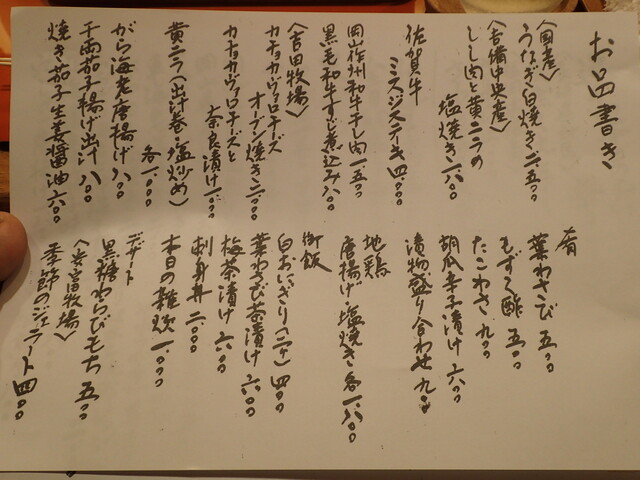 お品書き
〈国産〉
うなぎ白焼き 二、五〇〇
〈吉備中央産〉
しし肉と黄ニラの
塩焼き 一、八〇〇
佐賀牛
ミスジステーキ 四、〇〇〇
岡山作州和牛干し肉 一、五〇〇
黒毛和牛すじ煮込み 八〇〇
〈吉田牧場〉
カチョカヴァロチーズ
オーブン焼き 二、〇〇〇
カチョカヴァロチーズと
奈良漬け 一、〇〇〇
黄ニラ（出汁巻・塩炒め）
各一、〇〇〇
がら海老唐揚げ 八〇〇
千両茄子揚げ出汁 八〇〇
焼き茄子生姜醤油 六〇〇
肴
葉わさび 五〇〇
もずく酢 五〇〇
たこわさ 九〇〇
胡瓜辛子漬け 六〇〇
漬物盛り合わせ 九〇〇
地鶏
唐揚げ・塩焼き 各一、八〇〇
御飯
白おにぎり（二ヶ） 四〇〇
葉わさび茶漬け 六〇〇
梅茶漬け 六〇〇
刺身丼 二、〇〇〇
本日の雑炊 一、〇〇〇
デザート
黒糖わらびもち 五〇〇
〈安富牧場〉
季節のジェラート 四〇〇